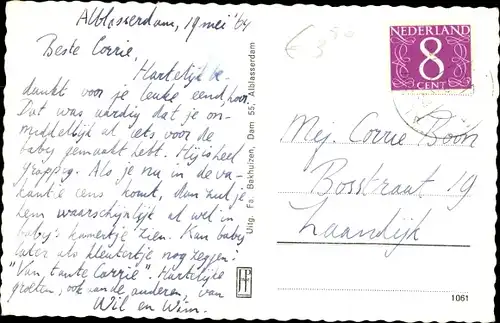 Alblasserdam, 19 mei '64
Beste Corrie,
Hartelijk be-
dankt voor je leuke eend, hoor.
Dat was aardig dat je on-
middellijk al iets voor de
baby gemaakt hebt. Hij is heel
grappig. Als je nu in de va-
kantie eens komt, dan zul je
hem waarschijnlijk al wel in
baby's kamertje zien. Kan baby
later als kleutertje nog zeggen:
"Van tante Corrie". Hartelijke
groeten, ook van de anderen, van
Wil en Wim.
Uitg. Fa. Bakhuizen, Dam 55, Alblasserdam
€ 3 50
NEDERLAND
8
CENT
Mej. Corrie
Bosstraat 19
Zaandijk
1061